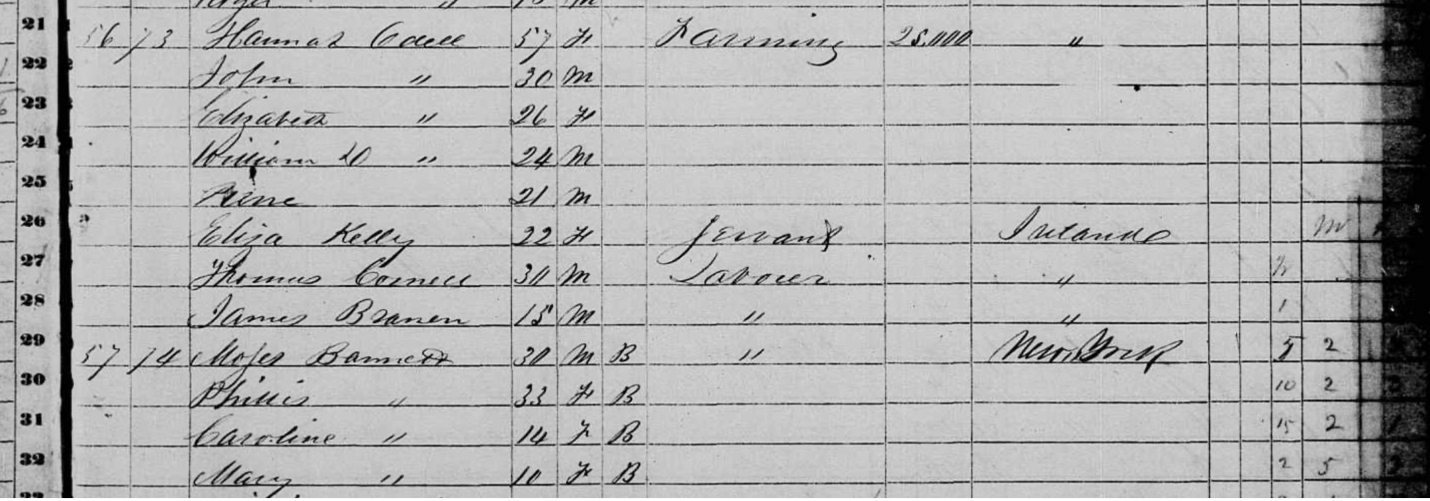 21 56 73 Hannah Odell 57 F Farming 25,000 "
22 John " 30 M
23 Elizabeth " 26 F
24 William D " 24 M
25 21 M
26 Eliza Kelly 22 F Servant Ireland M
27 Thomas Cornell 30 M Labourer "
28 James Branen 15 M " " 1
29 57 74 Moses Bannett 30 M B " New York 5 2
30 Phillis " 33 F B 10 2
31 Caroline " 14 F B 15 2 1
32 Mary " 10 F B 2 5